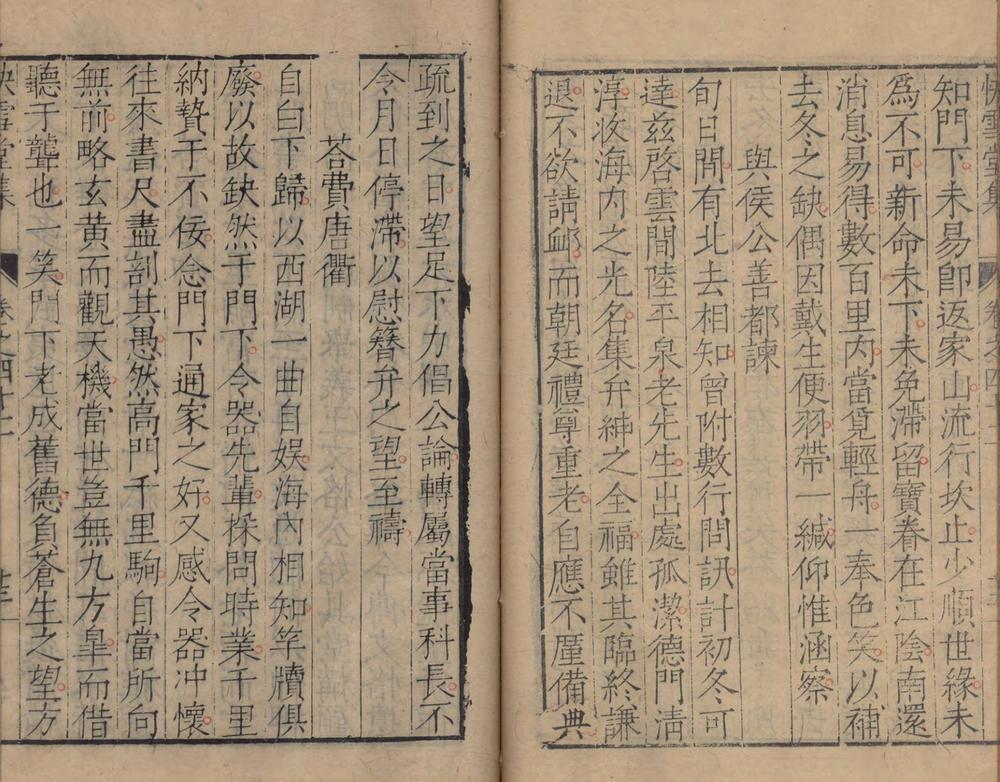 快雪堂集 卷之四十二
知門下未易卽返家山流行坎止少順世緣未
爲不可新命未下未免滯留寶眷在江陰南還
消息易得數百里內當覓輕舟一奉色笑以補
去冬之缺偶因戴生便羽帶一緘仰惟涵察
與侯公善都諫
旬日間有北去相知曾附數行問訊計初冬可
達茲啓雲間陸平泉老先生出處孤潔德門淸
淳收海內之光名集弁紳之全福雖其臨終謙
退不欲請䘏而朝廷禮尊重老自應不厪備典
疏到之日望足下力倡公論轉屬當事科長不
令月日停滯以慰簪弁之望至禱
荅費唐衢
自白下歸以西湖一曲自娛海內相知竿牘俱
廢以故缺然于門下令器先輩採問時業千里
納贄于不佞念門下通家之好又感令器冲懷
往來書尺盡剖其愚然高門千里駒自當所向
無前略玄黃而觀天機當世豈無九方臯而借
聽于聾也一笑門下老成舊德負蒼生之望方
快雪堂集 卷之四十二